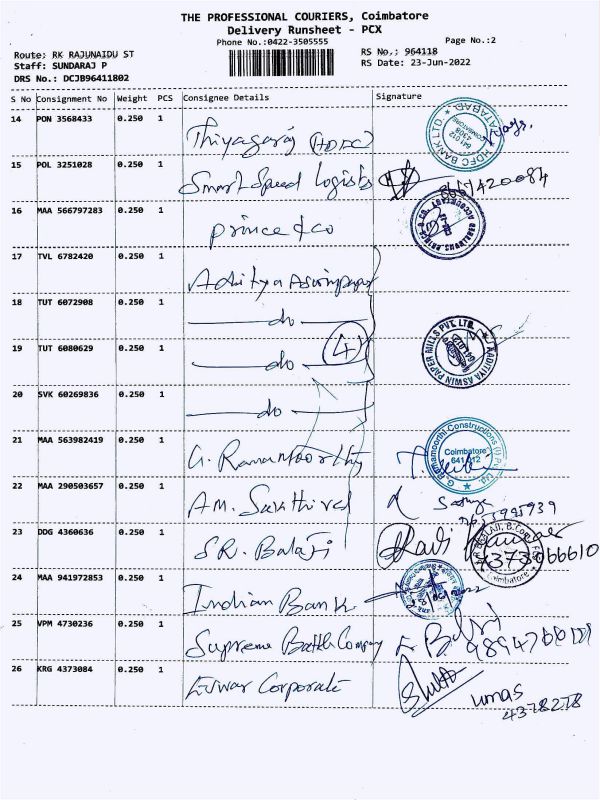 THE PROFESSIONAL COURIERS, Coimbatore
Delivery Runsheet - PCX
Phone No.:0422-3505555
Page No.:2
Route: RK RAJUNAIDU ST
RS No.: 964118
Staff: SUNDARAJ P
RS Date: 23-Jun-2022
DRS No.: DCJB96411802
S No Consignment No Weight PCS Consignee Details Signature
14 PON 3568433 0.250 1 Thiyagaraj (HDFC) HDFC BANK LTD. COIMBATORE 641 012
15 POL 3251028 0.250 1 Smart Speed Logists
16 MAA 566797283 0.250 1 Prince & co
17 TVL 6782420 0.250 1 Aditya Aswin paper
18 TUT 6072908 0.250 1 do
19 TUT 6080629 0.250 1 do 4 ADITYA ASWIN PAPER MILLS PVT. LTD. 641.012
20 SVK 60269836 0.250 1 do
21 MAA 563982419 0.250 1 G. Ramamoorthy Constructions (I) Pvt. Ltd. Coimbatore 641 012
22 MAA 290503657 0.250 1 A.M. Sakthivel
23 DDG 4360636 0.250 1 S.R. Balaji Ravi Kumar Coimbatore
24 MAA 941972853 0.250 1 Indian Bank
25 VPM 4730236 0.250 1 Supreme Battle Company
26 KRG 4373084 0.250 1 Eswar Corporate umas